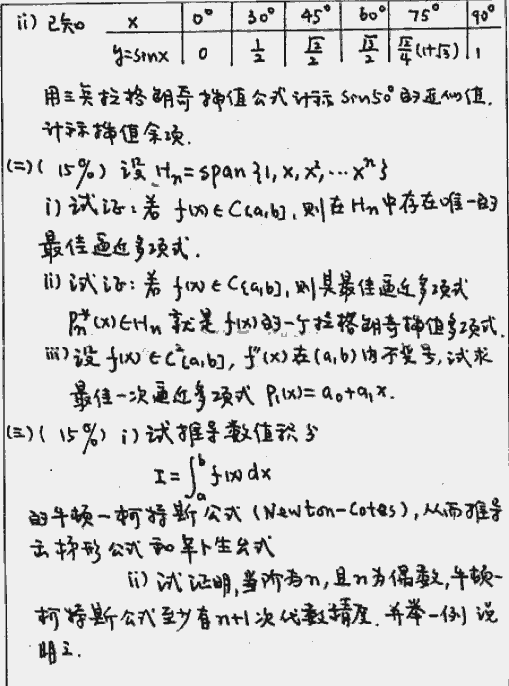 ii) 已知 x 0° 30° 45° 60° 75° 90°
y=sinx 0 1/2 √2/2 √3/2 √2/4(1+√3) 1
用三点拉格朗奇插值公式计标 sin50° 的近似值.
计标插值余项.
(二)( 15%) 设 Hn=span{1, x, x², ··· xⁿ}
i) 试证: 若 f(x)∈C[a,b], 则在 Hn 中存在唯一的
最佳逼近多项式.
ii) 试证: 若 f(x)∈C[a,b], 则其最佳逼近多项式
Pn*(x)∈Hn 就是 f(x) 的一个拉格朗奇插值多项式.
iii) 设 f(x)∈C²[a,b], f''(x) 在 (a,b) 内不变号, 试求
最佳一次逼近多项式 P₁(x)=a₀+a₁x.
(三)( 15%) i) 试推导数值积分
I=∫ₐᵇ f(x)dx
的牛顿-柯特斯公式 (Newton-Cotes), 从而推导
出梯形公式和辛卜生公式
ii) 试证明, 当阶为n, 且n为偶数, 牛顿-
柯特斯公式至少有n+1次代数精度. 并举一例说
明之.